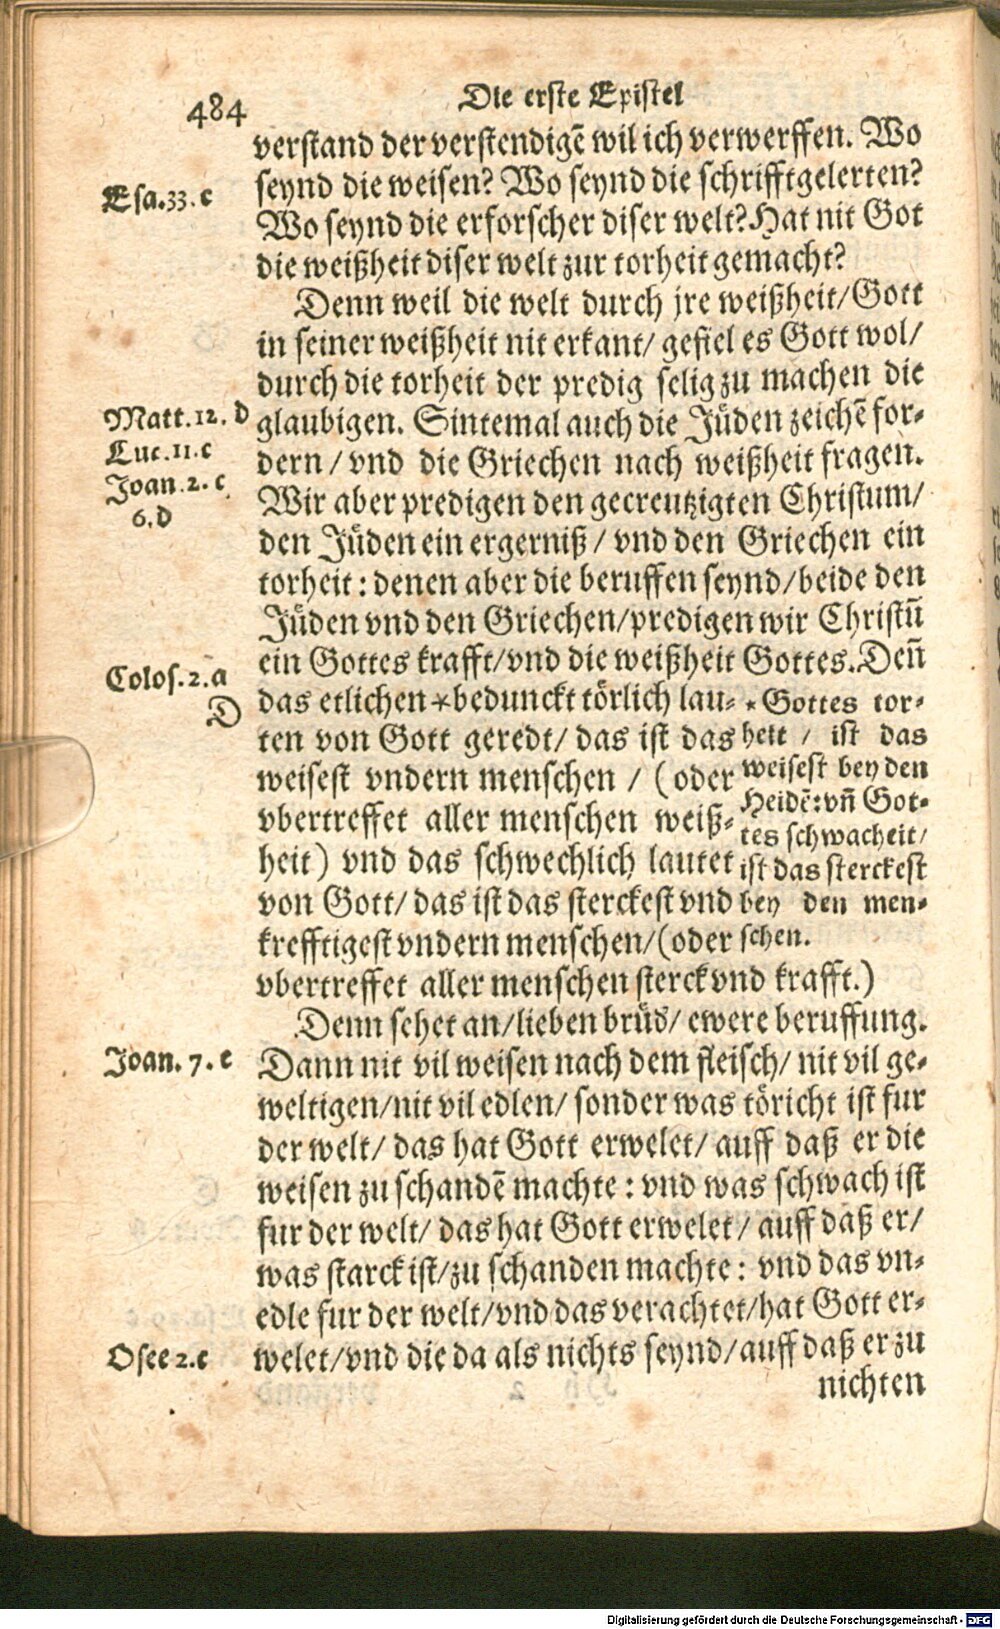 484
Die erste Epistel
verstand der verstendigẽ wil ich verwerffen. Wo
Esa.33.c
seynd die weisen? Wo seynd die schrifftgelerten?
Wo seynd die erforscher diser welt? Hat nit Got
die weißheit diser welt zur torheit gemacht?
Denn weil die welt durch jre weißheit/ Gott
in seiner weißheit nit erkant/ gefiel es Gott wol/
durch die torheit der predig selig zu machen die
Matt.12.d
glaubigen. Sintemal auch die Jüden zeichẽ for⸗
Luc.11.c
dern/ vnd die Griechen nach weißheit fragen.
Joan.2.c
Wir aber predigen den gecreutzigten Christum/
6.d
den Jüden ein ergerniß/ vnd den Griechen ein
torheit: denen aber die beruffen seynd/ beide den
Jüden vnd den Griechen/ predigen wir Christũ
ein Gottes krafft/ vnd die weißheit Gottes. Deñ
Colos.2.a
D
das etlichen *bedunckt törlich lau⸗
ten von Gott geredt/ das ist das
weisest vndern menschen/ (oder
vbertreffet aller menschen weiß⸗
heit) vnd das schwechlich lautet
von Gott/ das ist das sterckest vnd
krefftigest vndern menschen/ (oder
* Gottes tor⸗
heit/ ist das
weisest bey den
Heidẽ: vñ Got⸗
tes schwacheit/
ist das sterckest
bey den men⸗
schen.
vbertreffet aller menschen sterck vnd krafft.)
Denn sehet an/ lieben brüd/ ewere beruffung.
Joan. 7. e
Dann nit vil weisen nach dem fleisch/ nit vil ge⸗
weltigen/ nit vil edlen/ sonder was töricht ist fur
der welt/ das hat Gott erwelet/ auff daß er die
weisen zu schandẽ machte: vnd was schwach ist
fur der welt/ das hat Gott erwelet/ auff daß er/
was starck ist/ zu schanden machte: vnd das vn⸗
edle fur der welt/ vnd das verachtet/ hat Gott er⸗
Osee 2.c
welet/ vnd die da als nichts seynd/ auff daß er zu
nichten
Digitalisierung gefördert durch die Deutsche Forschungsgemeinschaft - DFG